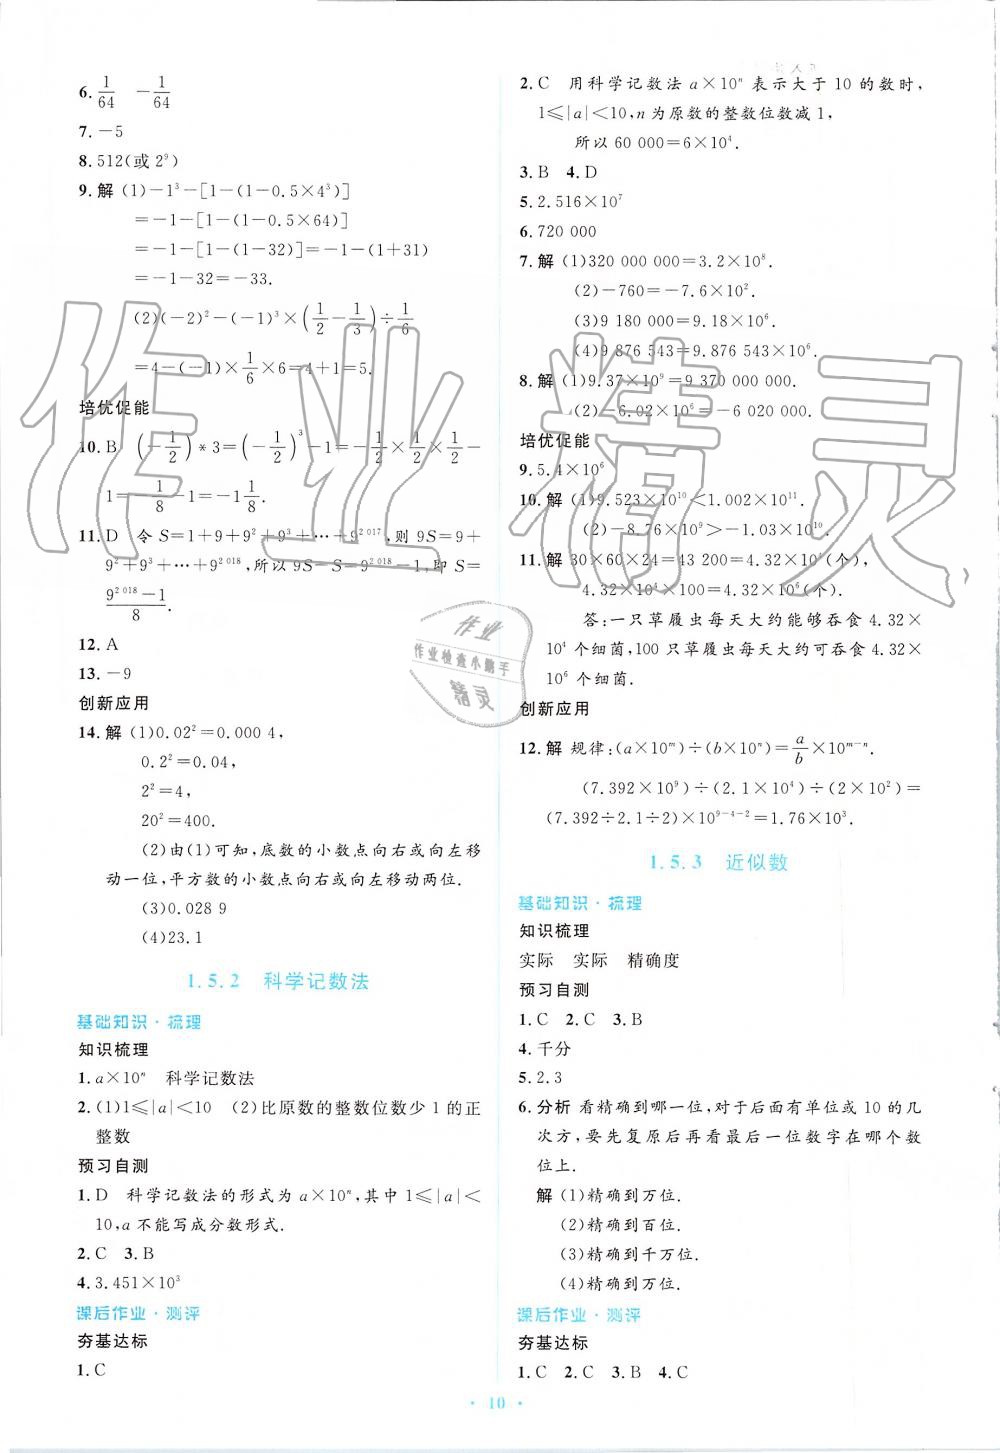 6. 1/64　-1/64
7. -5
8. 512(或 2⁹)
9. 解 (1)-1³-[1-(1-0.5×4³)]
=-1-[1-(1-0.5×64)]
=-1-[1-(1-32)]=-1-(1+31)
=-1-32=-33.
(2)(-2)²-(-1)³×(1/2-1/3)÷1/6
=4-(-1)×1/6×6=4+1=5.
培优促能
10. B　(-1/2)*3=(-1/2)³-1=-1/2×1/2×1/2-
1=-1/8-1=-1 1/8.
11. D　令 S=1+9+9²+9³+…+9^{2 017},则 9S=9+
9²+9³+…+9^{2 018},所以 9S-S=9^{2 018}-1,即 S=
(9^{2 018}-1)/8.
12. A
13. -9
创新应用
14. 解 (1)0.02²=0.000 4,
0.2²=0.04,
2²=4,
20²=400.
(2)由(1)可知,底数的小数点向右或向左移
动一位,平方数的小数点向右或向左移动两位.
(3)0.028 9
(4)23.1
1.5.2　科学记数法
基础知识·梳理
知识梳理
1. a×10ⁿ　科学记数法
2. (1)1≤|a|<10　(2)比原数的整数位数少 1 的正
整数
预习自测
1. D　科学记数法的形式为 a×10ⁿ,其中 1≤|a|<
10,a 不能写成分数形式.
2. C　3. B
4. 3.451×10³
课后作业·测评
夯基达标
1. C
2. C　用科学记数法 a×10ⁿ 表示大于 10 的数时,
1≤|a|<10,n 为原数的整数位数减 1,
所以 60 000=6×10⁴.
3. B　4. D
5. 2.516×10⁷
6. 720 000
7. 解 (1)320 000 000=3.2×10⁸.
(2)-760=-7.6×10².
(3)9 180 000=9.18×10⁶.
(4)9 876 543=9.876 543×10⁶.
8. 解 (1)9.37×10⁹=9 370 000 000.
(2)-6.02×10⁶=-6 020 000.
培优促能
9. 5.4×10⁶
10. 解 (1)9.523×10¹⁰<1.002×10¹¹.
(2)-8.76×10⁹>-1.03×10¹⁰.
11. 解 30×60×24=43 200=4.32×10⁴(个),
4.32×10⁴×100=4.32×10⁶(个).
答:一只草履虫每天大约能够吞食 4.32×
10⁴ 个细菌,100 只草履虫每天大约可吞食 4.32×
10⁶ 个细菌.
创新应用
12. 解 规律:(a×10ᵐ)÷(b×10ⁿ)=a/b×10ᵐ⁻ⁿ.
(7.392×10⁹)÷(2.1×10⁴)÷(2×10²)=
(7.392÷2.1÷2)×10⁹⁻⁴⁻²=1.76×10³.
1.5.3　近似数
基础知识·梳理
知识梳理
实际　实际　精确度
预习自测
1. C　2. C　3. B
4. 千分
5. 2.3
6. 分析 看精确到哪一位,对于后面有单位或 10 的几
次方,要先复原后再看最后一位数字在哪个数
位上.
解 (1)精确到万位.
(2)精确到百位.
(3)精确到千万位.
(4)精确到万位.
课后作业·测评
夯基达标
1. C　2. C　3. B　4. C
· 10 ·
作业精灵
作业
作业检查小助手
精灵